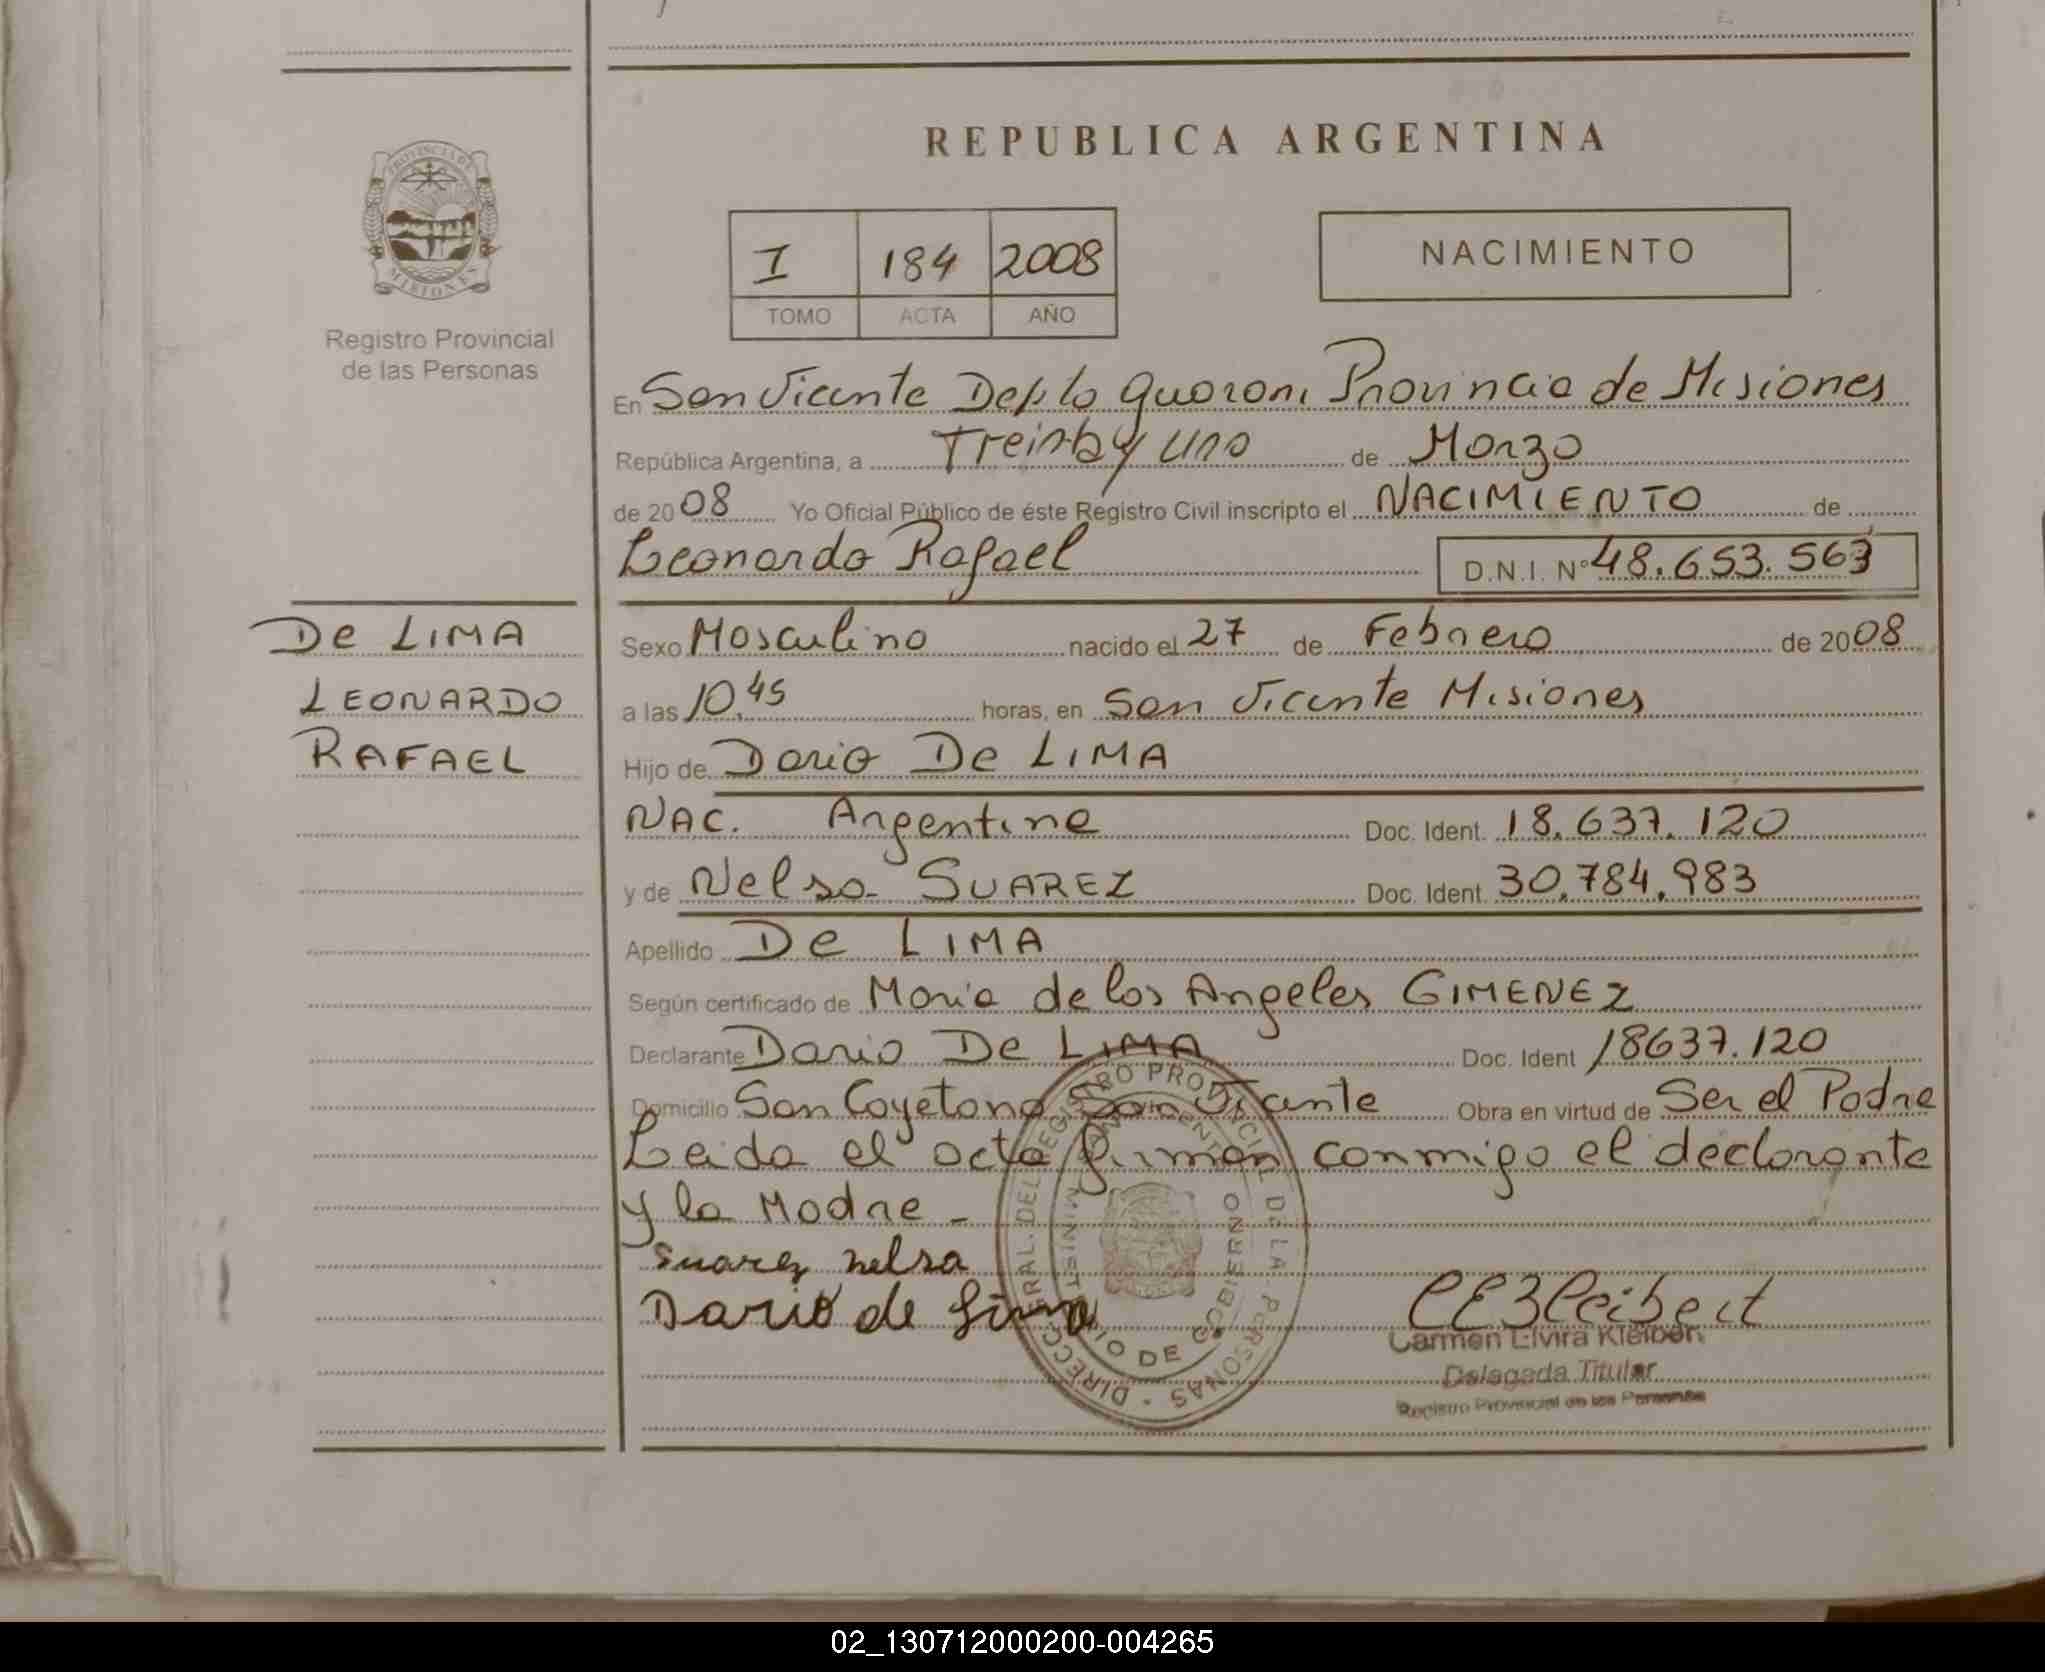 REPUBLICA ARGENTINA
PROVINCIA DE
MISIONES
Registro Provincial
de las Personas
I 184 2008
TOMO ACTA AÑO
NACIMIENTO
En San Vicente Depto Guarani Provincia de Misiones
República Argentina, a Treinta y uno de Marzo
de 2008 Yo Oficial Público de éste Registro Civil inscripto el NACIMIENTO de
Leonardo Rafael D.N.I. N° 48.653.563
De LIMA
LEONARDO
RAFAEL
Sexo Masculino nacido el 27 de Febrero de 2008
a las 10,45 horas, en San Vicente Misiones
Hijo de Dario De LIMA
NAC. Argentina Doc. Ident. 18.637.120
y de Nelsa SUAREZ Doc. Ident. 30.784.983
Apellido De LIMA
Según certificado de Maria de los Angeles GIMENEZ
Declarante Dario De LIMA Doc. Ident 18637.120
Domicilio San Cayetano San Vicente Obra en virtud de Ser el Padre
Leida el acta firman conmigo el declarante
y la Madre -
Suarez nelsa
Dario de Lima
DIRECC. GRAL. DEL REGISTRO PROVINCIAL DE LA PERSONAS
MINISTERIO DE GOBIERNO
Carmen Elvira Kleibert
Delegada Titular
Registro Provincial de las Personas
02_130712000200-004265